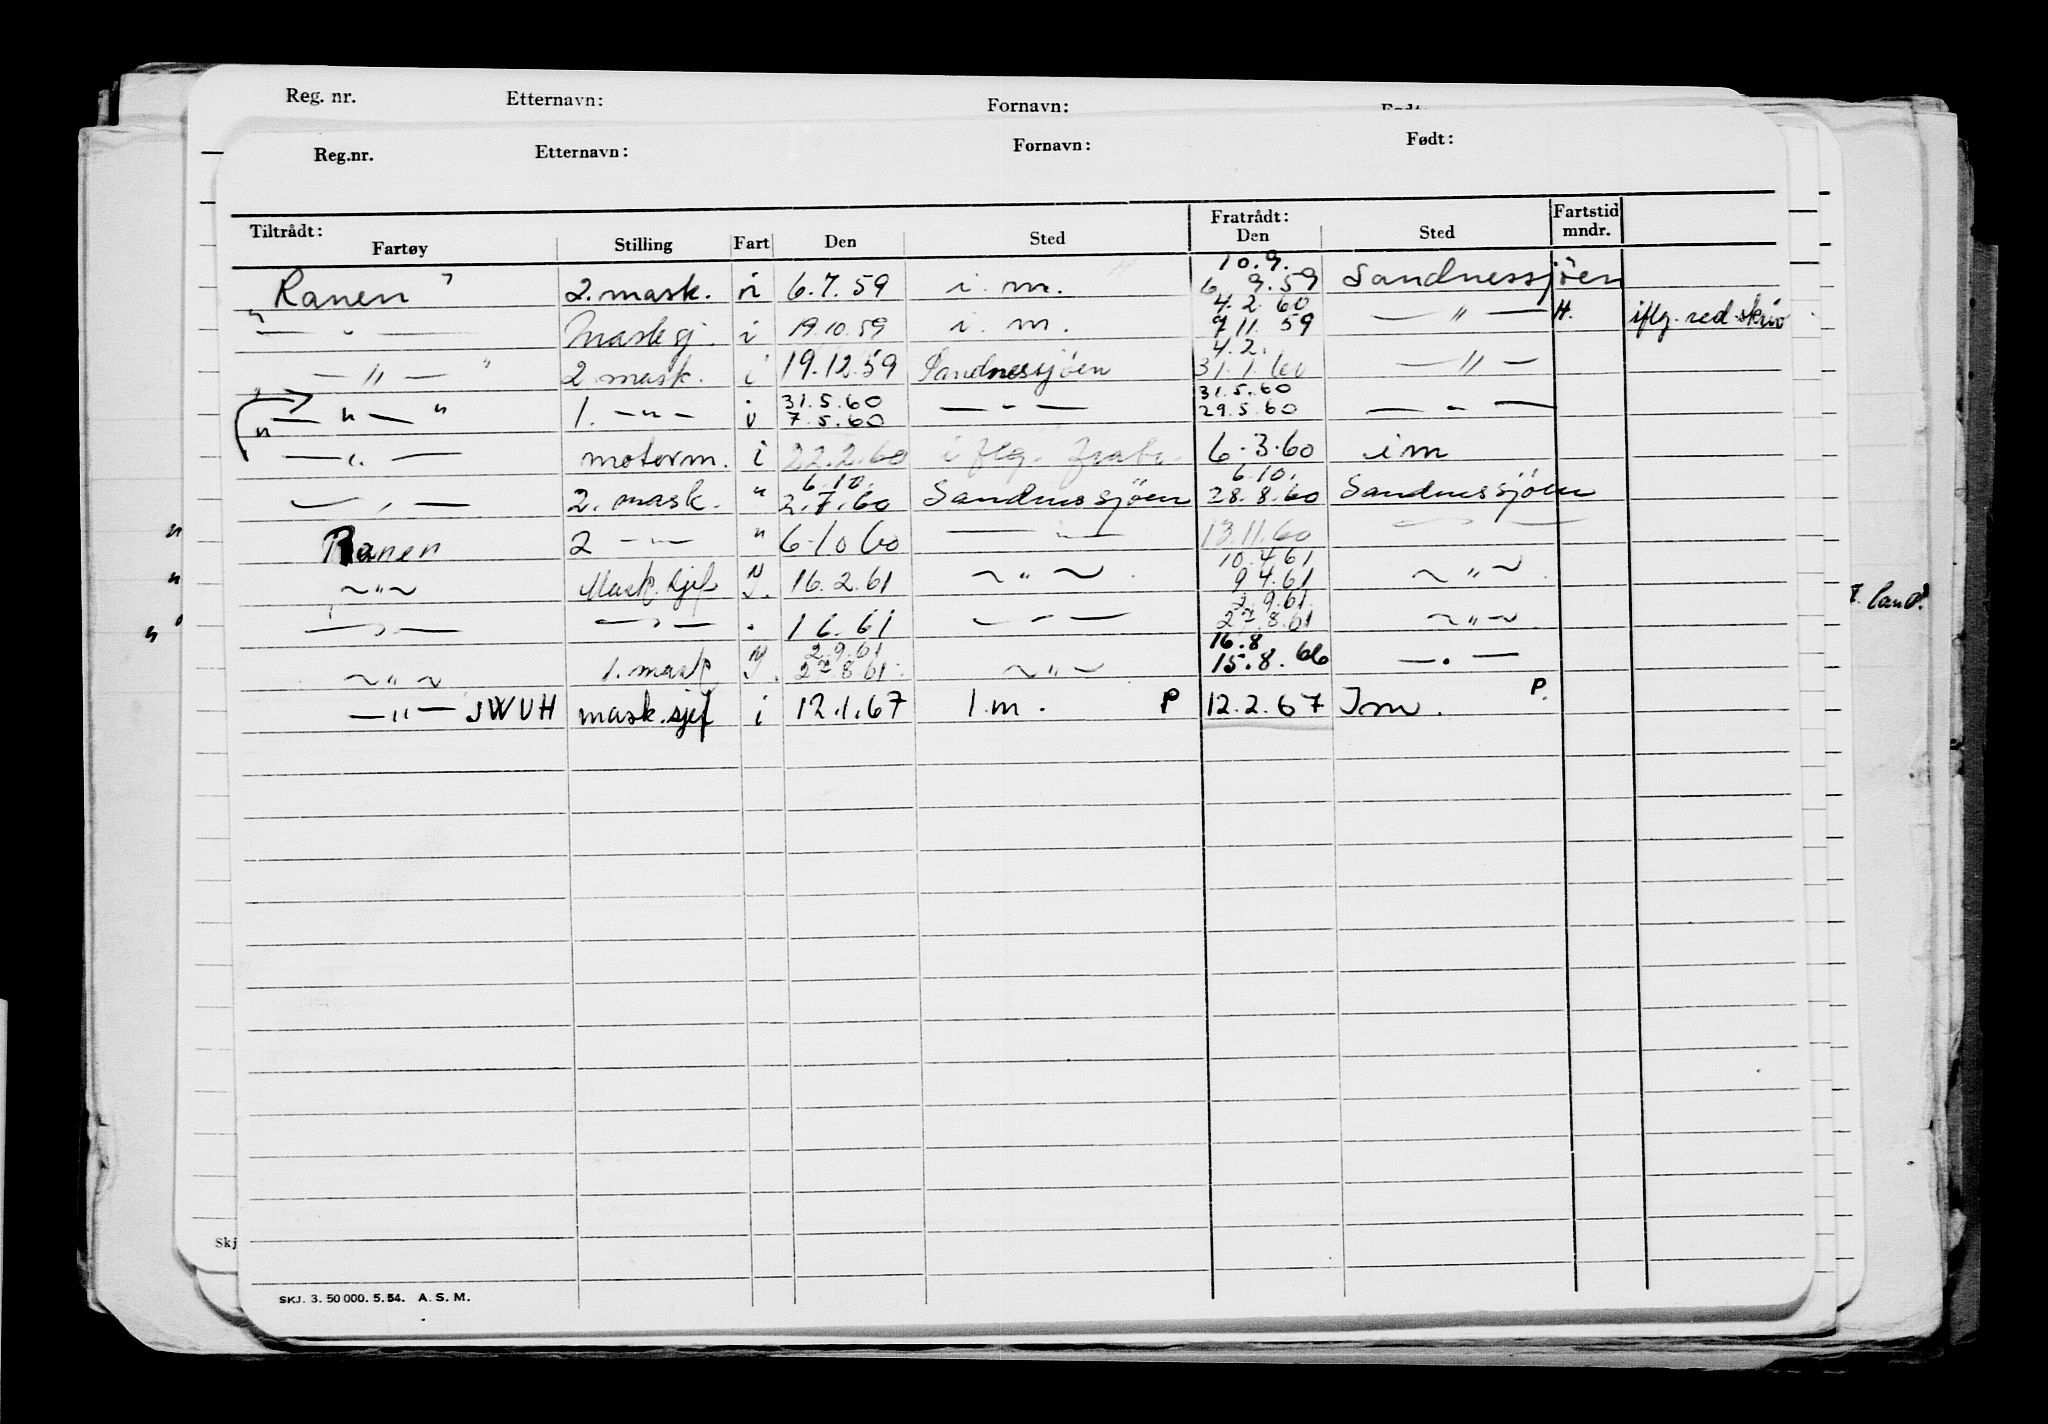 Reg. nr. Etternavn: Fornavn: Født:
Reg.nr. Etternavn: Fornavn: Født:
Tiltrådt: Fratrådt: Fartstid
Fartøy Stilling Fart Den Sted Den Sted mndr.
10.9.
"Ranen" 2. mask. i 6.7.59 i. m. 6.9.59 Sandnessjöen
4.2.60
— " — Masksj. i 19.10.59 i. m. 9.11.59 — " — H. iflg. red. skriv
4.2.
— " — " 2 mask. i 19.12.59 Sandnessjöen 31.1.60 — " —
31.5.60 31.5.60
" — " — " 1. — " — i 7.5.60 — " — 29.5.60 — " —
— " — motorm. i 22.2.60 i flg. 6.3.60 i m
6.10. 6.10.
— " — 2. mask. " 2.7.60 Sandnessjöen 28.8.60 Sandnessjöen
" Ranen 2 — " — " 6.10.60 — " — 13.11.60 — " —
10.4.61
" — " — Mask. sjef 16.2.61 — " — 9.4.61 — " —
2.9.61
" — " — — " — 1.6.61 — " — 8.61 — " —
2.9.61 16.8
— " — 1. mask 8.61 — " — 15.8.66 — " —
— " — JWUH mask. sjef i 12.1.67 I. m. P 12.2.67 Im. P.
land.
Skj
SKJ. 3. 50 000. 5. 54. A. S. M.